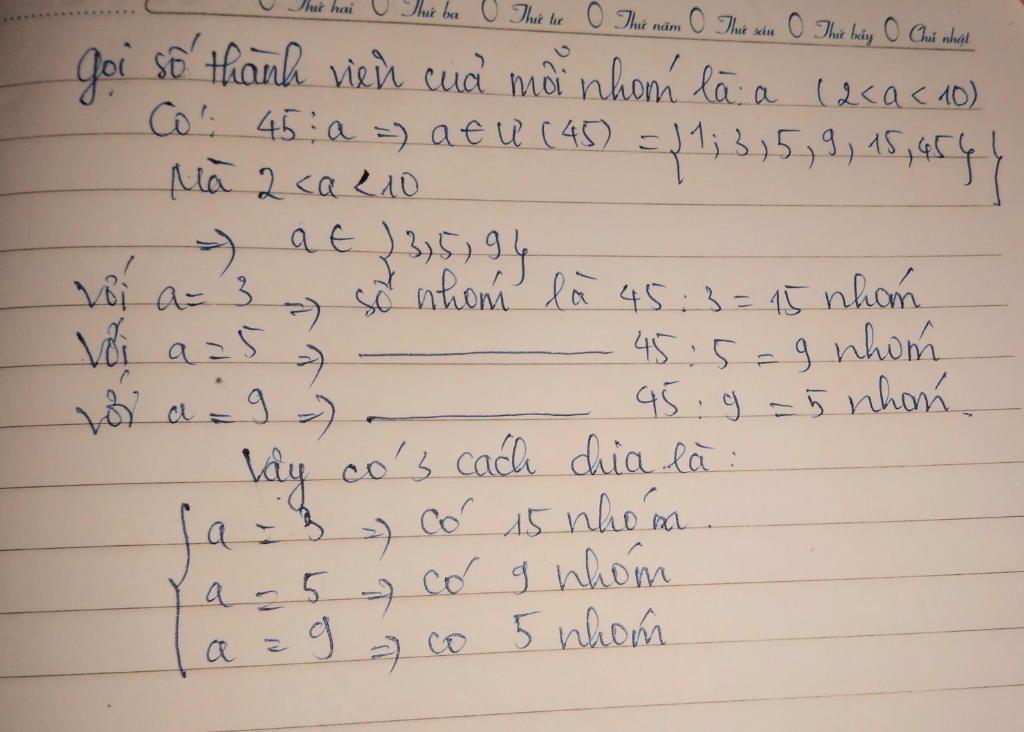 Thứ hai Thứ ba Thứ tư Thứ năm Thứ sáu Thứ bảy Chủ nhật
Gọi số thành viên của mỗi nhóm là: a (2 < a < 10)
Có: 45 ⋮ a => a ∈ Ư (45) = {1; 3, 5, 9, 15, 45}}
Mà 2 < a < 10
=> a ∈ {3, 5, 9}
Với a = 3 => số nhóm là 45 : 3 = 15 nhóm
Với a = 5 => ——— 45 : 5 = 9 nhóm
Với a = 9 => ——— 45 : 9 = 5 nhóm.
Vậy có 3 cách chia là:
a = 3 => có 15 nhóm.
a = 5 => có 9 nhóm
a = 9 => co 5 nhóm